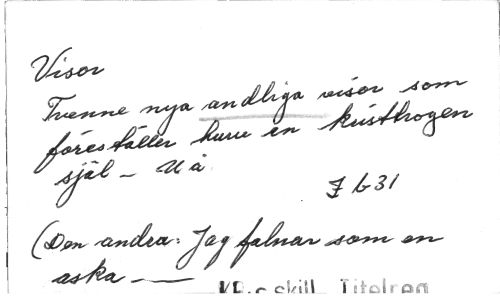 Visor
Tvenne nya andliga visor som
föreställer huru en kristtrogen
själ – U å
F b 31
(Den andra: Jag falnar som en
aska —
KB:s skill. Titelreg